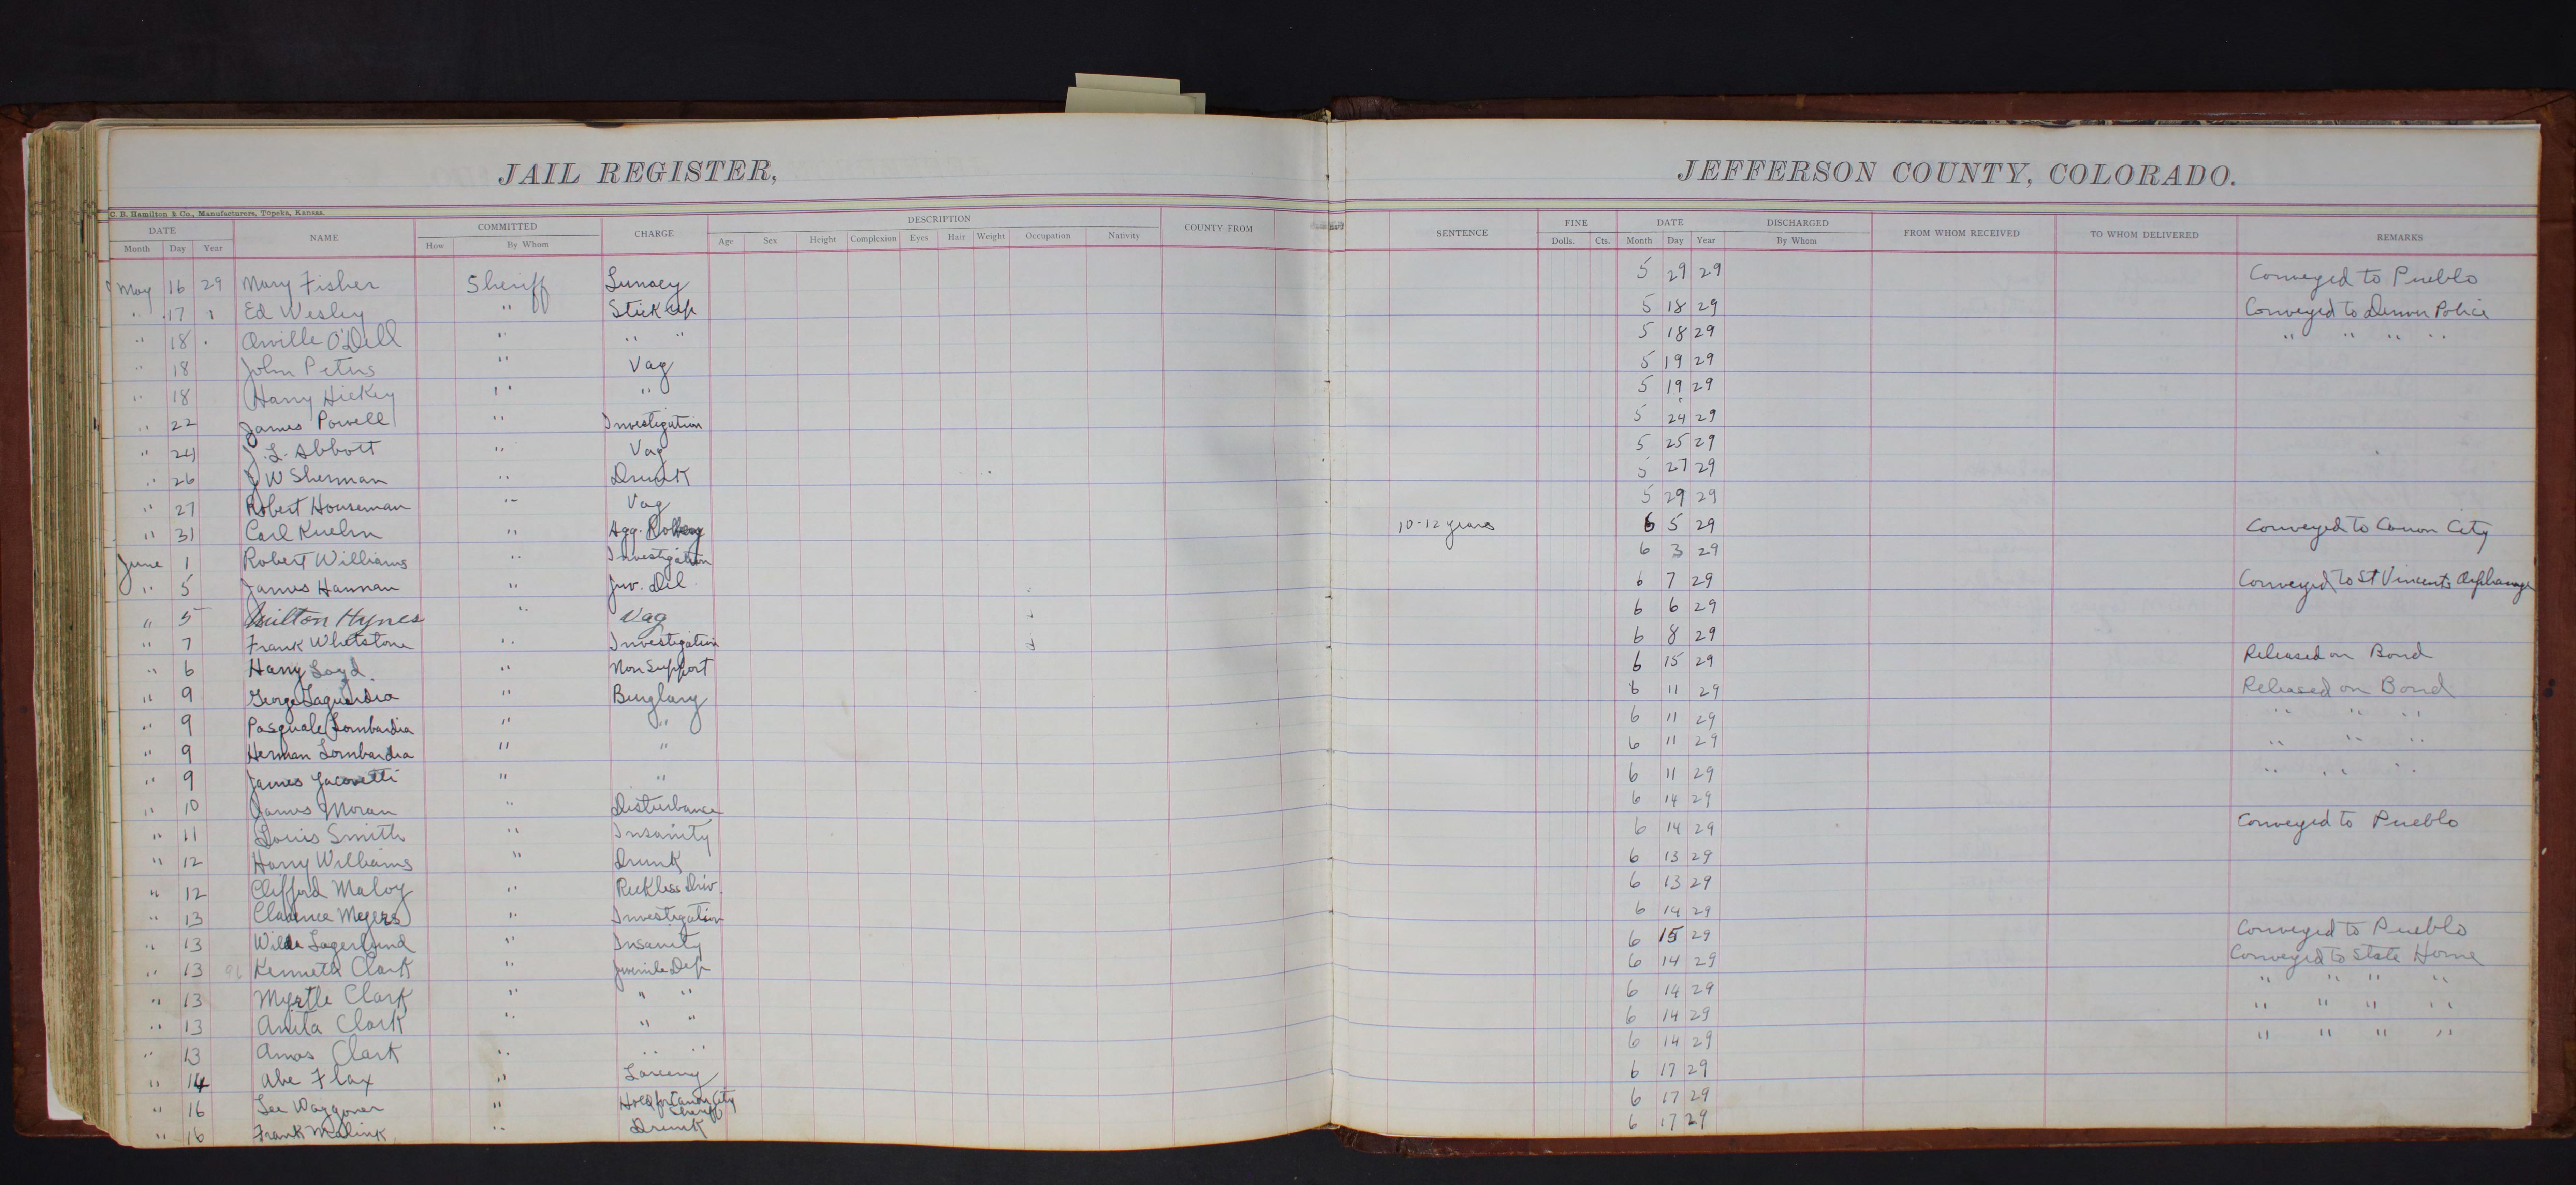 JAIL REGISTER, JEFFERSON COUNTY, COLORADO.
C. B. Hamilton & Co., Manufacturers, Topeka, Kansas.
DATE NAME COMMITTED CHARGE DESCRIPTION COUNTY FROM SENTENCE FINE DATE DISCHARGED FROM WHOM RECEIVED TO WHOM DELIVERED REMARKS
Month Day Year How By Whom Age Sex Height Complexion Eyes Hair Weight Occupation Nativity Dolls. Cts. Month Day Year By Whom
May 16 29 Mary Fisher Sheriff Lunacy 5 29 29 Conveyed to Pueblo
" 17 " Ed Wesley " Stick up 5 18 29 Conveyed to Denver Police
" 18 " Orville O'Dell " " " 5 18 29 " " " "
" 18 John Peters " Vag 5 19 29
" 18 Harry Hickey " " 5 19 29
" 22 James Powell " Investigation 5 24 29
" 24 J. L. Abbott " Vag 5 25 29
" 26 J W Sherman " Drunk 5 27 29
" 27 Robert Houseman " Vag 5 29 29
" 31 Carl Kuehn " Agg. Robbery 10-12 years 6 5 29 Conveyed to Canon City
June 1 Robert Williams " Investigation 6 3 29
" 5 James Hannan " Juv. Del. 6 7 29 Conveyed to St Vincents Orphanage
" 5 Milton Hynes " Vag 6 6 29
" 7 Frank Whetstone " Investigation 6 8 29
" 6 Harry Loyd. " Non Support 6 15 29 Released on Bond
" 9 George Laguardia " Burglary 6 11 29 Released on Bond
" 9 Pasquale Lombardia " " 6 11 29 " " "
" 9 Herman Lombardia " " 6 11 29 " " "
" 9 James Jacovetti " " 6 11 29 " " "
" 10 James Moran " Disturbance 6 14 29
" 11 Louis Smith " Insanity 6 14 29 Conveyed to Pueblo
" 12 Harry Williams " Drunk 6 13 29
" 12 Clifford Maloy " Reckless Driv. 6 13 29
" 13 Clarence Meyers " Investigation 6 14 29
" 13 Lagerlund " Insanity 6 15 29 Conveyed to Pueblo
" 13 Kenneth Clark " Juvenile Dep 6 14 29 Conveyed to State Home
" 13 Myrtle Clark " " " 6 14 29 " " " "
" 13 Anita Clark " " " 6 14 29 " " " "
" 13 Amos Clark " " " 6 14 29 " " " "
" 14 Abe Flax " Larceny 6 17 29
" 16 Lee Waggoner " Hold for Canon City Sheriff 6 17 29
" 16 Frank Malink " Drunk 6 17 29